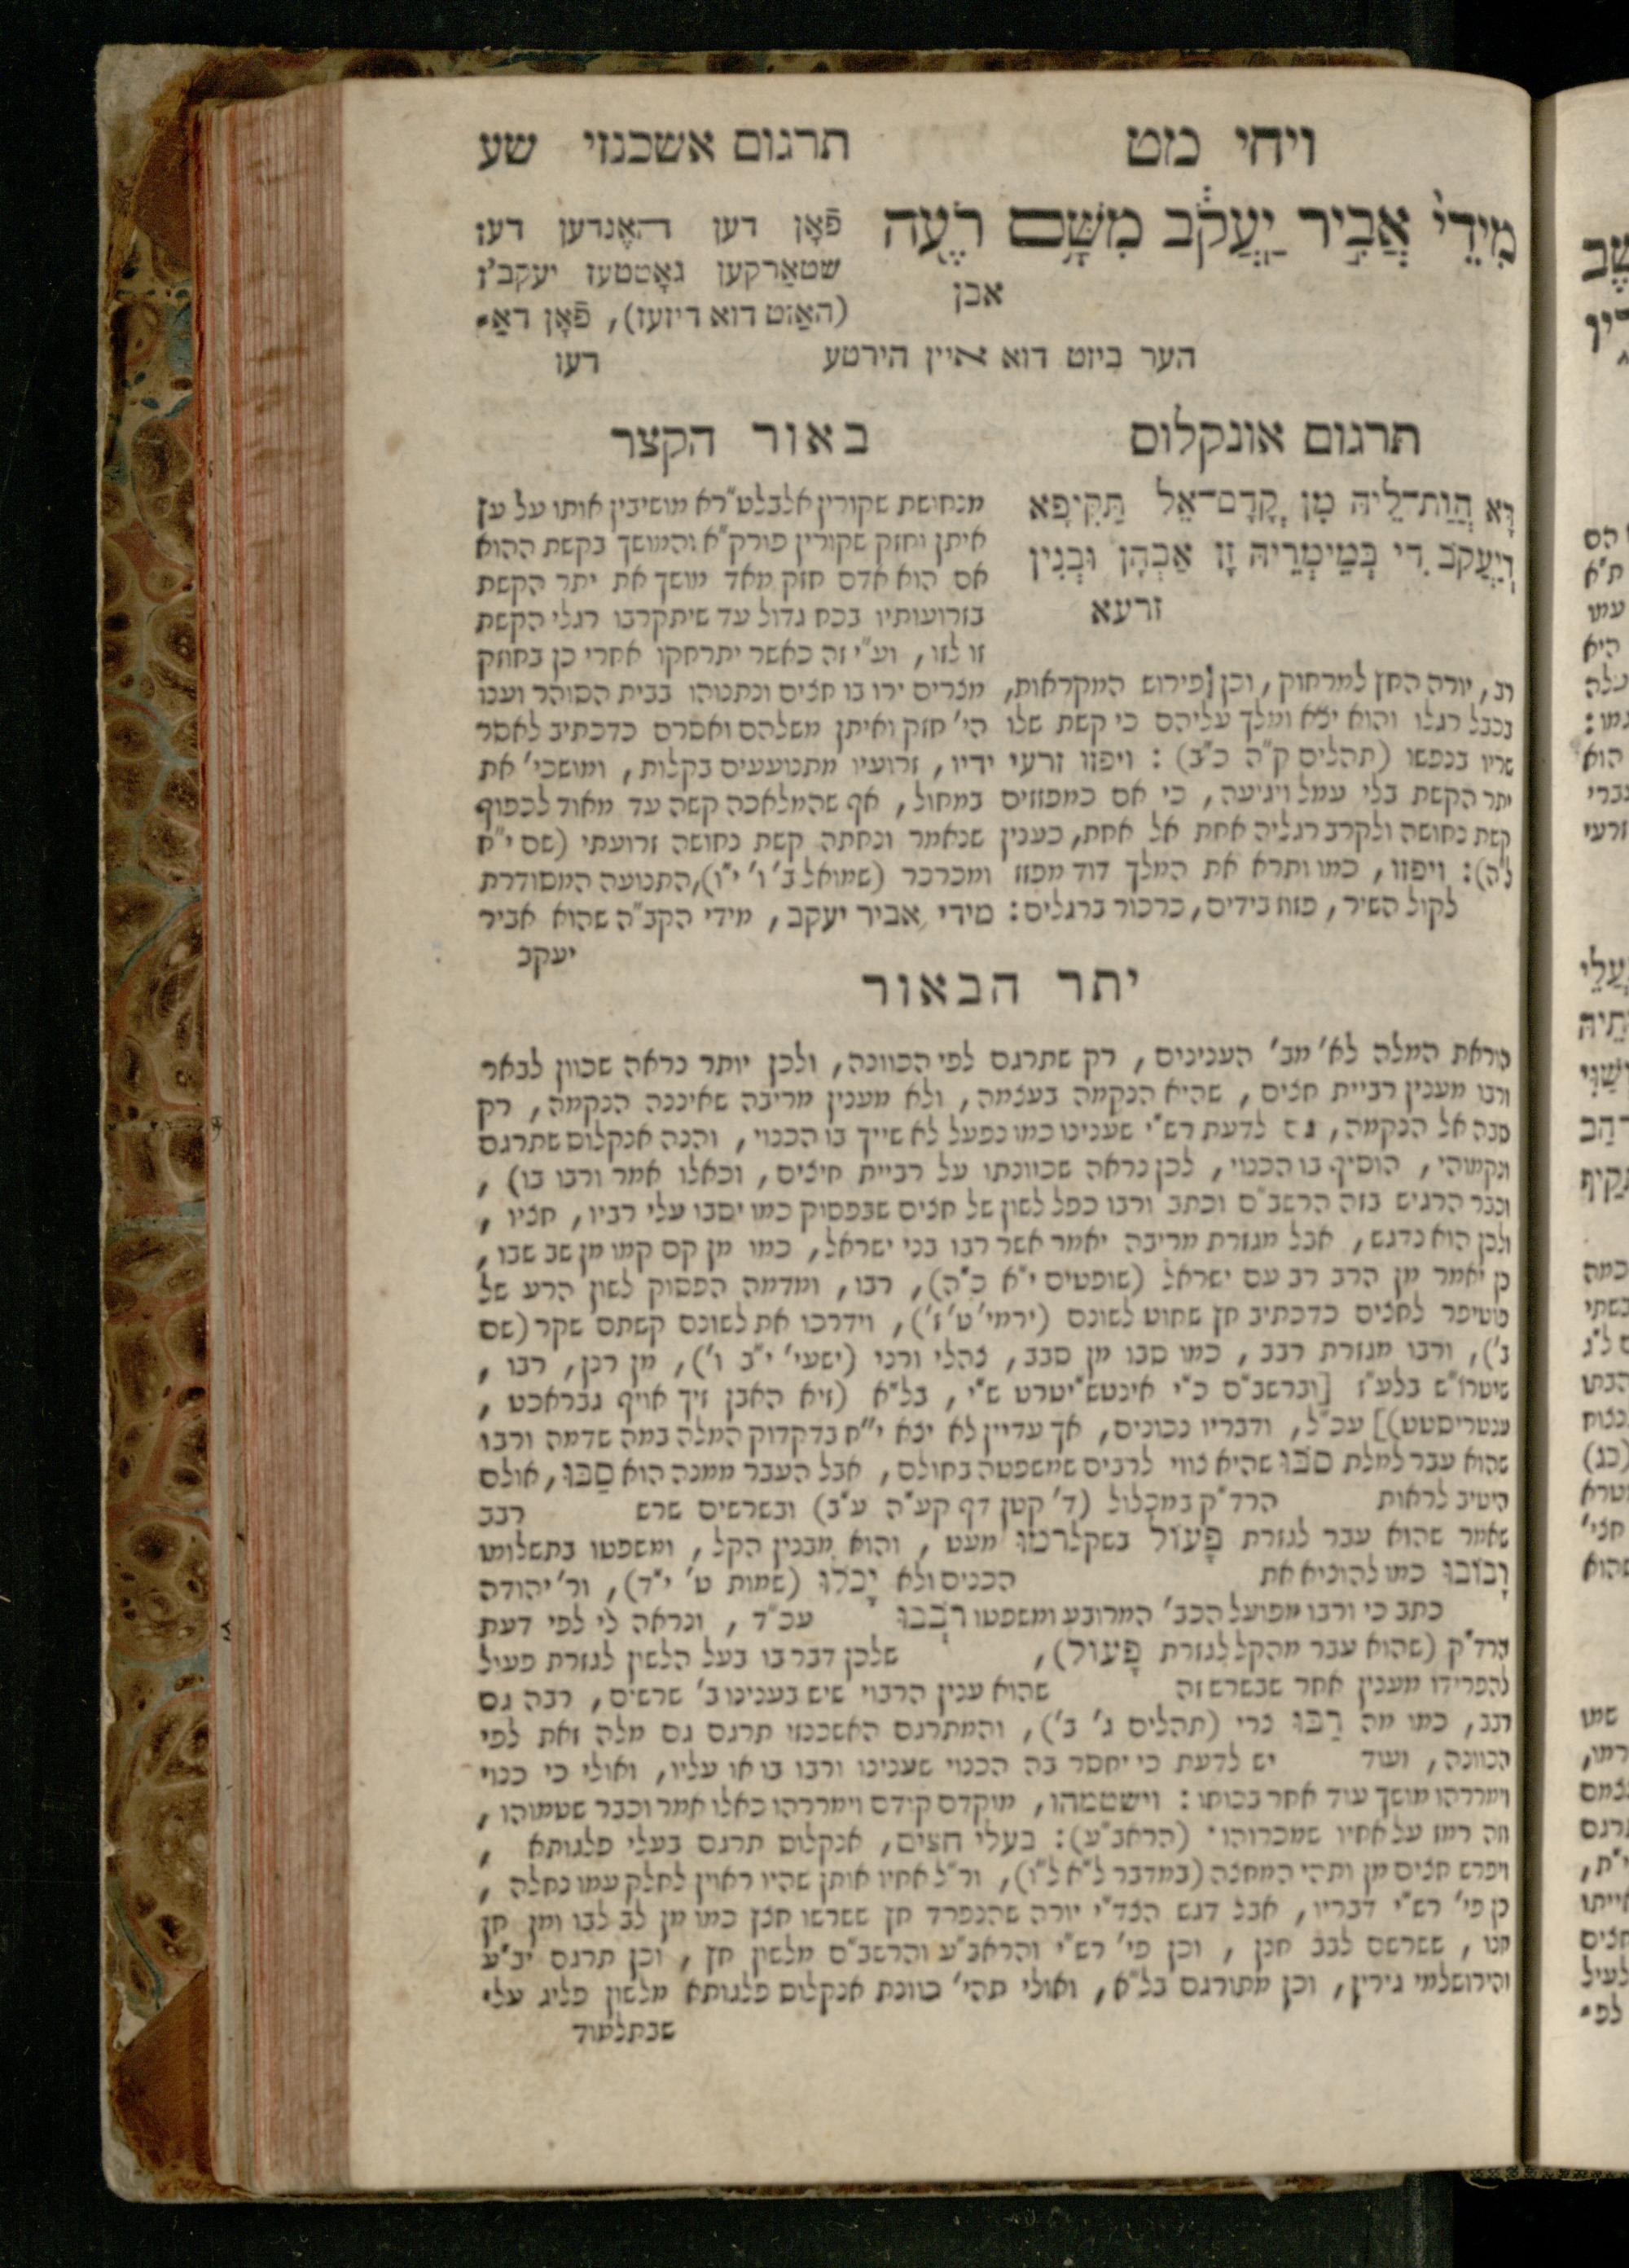 ויחי מט תרגום אשכנזי שע
מִידֵי֙ אֲבִ֣יר יַֽעֲקֹ֔ב מִשָּׁ֥ם רֹעֶ֖ה
אבן
פֿאָן דען האֶנדען דעז
שטאַרקען גאָטטעז יעקב'ז
(האַזט דוא דיזעז), פֿאָן דאַ־
הער ביזט דוא איין הירטע דעו
תרגום אונקלוס
דָּא הֲוַת־לֵיהּ מִן קֳדָם־אֵל תַּקִּיפָא
דְיַעֲקֹב דִי בְּמֵימְרֵיהּ זָן אַבְהָן וּבְנִין
זרעא
באור הקצר
מנחושת שקורין אלבלט״רא מושיבין אותו על עץ
איתן וחזק שקורין פורק״א והמושך בקשת ההוא
אם הוא אדם חזק מאד מושך את יתר הקשת
בזרועותיו בכח גדול עד שיתקרבו רגלי הקשת
זו לזו, וע״י זה כאשר יתרחקו אחרי כן בחוזק
רב, יורה החץ למרחוק, וכן [פירוש המקראות, מצרים ירו בו חצים ונתנוהו בבית הסוהר וענו
בכבל רגלו והוא יצא ומלך עליהם כי קשת שלו הי׳ חזק ואיתן משלהם ואסרם כדכתיב לאסר
שריו בנפשו (תהלים ק״ה כ״ב): ויפזו זרעי ידיו, זרועיו מתנועעים בקלות, ומושכי׳ את
יתר הקשת בלי עמל ויגיעה, כי אם כמפזזים במחול, אף שהמלאכה קשה עד מאוד לכפוף
קשת נחושה ולקרב רגליה אחת אל אחת, כענין שנאמר ונחתה קשת נחושה זרועתי (שם י״ח
ל״ה): ויפזו, כמו ותרא את המלך דוד מפזז ומכרכר (שמואל ב׳ ו׳ י״ו), התנועה המסודרת
לקול השיר, פזוז בידים, כרכור ברגלים: מידי אביר יעקב, מידי הקב״ה שהוא אביר
יעקב
יתר הבאור
הוראת המלה לא׳ מב׳ הענינים, רק שתרגם לפי הכוונה, ולכן יותר נראה שכוון לבאר
ורבו מענין רביית חצים, שהיא הנקמה בעצמה, ולא מענין מריבה שאיננה הנקמה, רק
סבה אל הנקמה, לדעת רש״י שענינו כמו נפעל לא שייך בו הכנוי, והנה אנקלוס שתרגם
ונקמוהי, הוסיף בו הכנוי, לכן נראה שכוונתו על רביית חיצים, וכאלו אמר ורבו בו),
וכבר הרגיש בזה הרשב״ם וכתב ורבו כפל לשון של חצים שבפסוק כמו יסבו עלי רביו, חציו,
ולכן הוא נדגש, אבל מגזרת מריבה יאמר אשר רבו בני ישראל, כמו מן קם קמו מן שב שבו,
כן יאמר מן הרב רב עם ישראל (שופטים י״א כ״ה), רבו, ומדמה הפסוק לשון הרע של
פוטיפר לחצים כדכתיב חץ שחוט לשונם (ירמי׳ ט׳ ז׳), וידרכו את לשונם קשתם שקר (שם
ב׳), ורבו מגזרת רבב, כמו סבו מן סבב, צהלי ורני (ישעי׳ י״ב ו׳), מן רנן, רבו,
שיטרו״ש בלע״ז [וברשב״ם כ״י אינטש״יטרט ש״י, בל״א (זיא האבן זיך אויף געבראכט,
ענטריסטט)] עכ״ל, ודבריו נכונים, אך עדיין לא יצא י״ח בדקדוק המלה במה שדמה ורבו
שהוא עבר למלת סֹבּוּ שהיא צווי לרבים שמשפטה בחולם, אבל העבר ממנה הוא סַבּוּ, אולם
היטיב לראות הרד״ק במכלול (ד׳ קטן דף קע״ה ע״ב) ובשרשים שרש רבב
שאמר שהוא עבר לגזרת פָּעוֹל בשקל רמו מעט, והוא מבנין הקל, ומשפטו בתשלומו
וָבוֹבוּ כמו להוציא את הכנים ולא יָכֹלוּ (שמות ט׳ י״ד), ור׳ יהודה
כתב כי ורבו מפועל הכב׳ המרובע ומשפטו רֹבְבוּ עכ״ד, ונראה לי לפי דעת
הרד״ק (שהוא עבר מהקל לגזרת פָּעוֹל), שלכן דבר בו בעל הלשון לגזרת פעול
להפרידו מענין אחר שבשרש זה שהוא ענין הרבוי שיש בענינו ב׳ שרשים, רבה גם
רבב, כמו מה רַבּוּ צרי (תהלים ג׳ ב׳), והמתרגם האשכנזי תרגם גם מלה זאת לפי
הכוונה, ועוד יש לדעת כי יחסר בה הכנוי שענינו ורבו בו או עליו, ואולי כי כנוי
וימררהו מושך עוד אחר בכוחו: וישטמהו, מוקדם קודם וימררהו כאלו אמר וכבר שטמוהו,
וזה רמז על אחיו שמכרוהו (הראב״ע): בעלי חצים, אנקלוס תרגם בעלי פלגותא,
ויפרש חצים מן ותהי המחצה (במדבר ל״א ל״ו), ור״ל אחיו אותן שהיו ראוין לחלק עמו נחלה,
כן פי׳ רש״י דבריו, אבל דגש הצד״י יורה שהנפרד חץ ששרשו חצץ כמו מן לב לבו ומן חן
חנו, ששרשם לבב חנן, וכן פי׳ רש״י והראב״ע והרשב״ם מלשון חץ, וכן תרגם יב״ע
והירושלמי גירין, וכן מתורגם בל״א, ואולי תהי׳ כוונת אנקלוס פלגותא מלשון פליג עלי
שבתלמוד